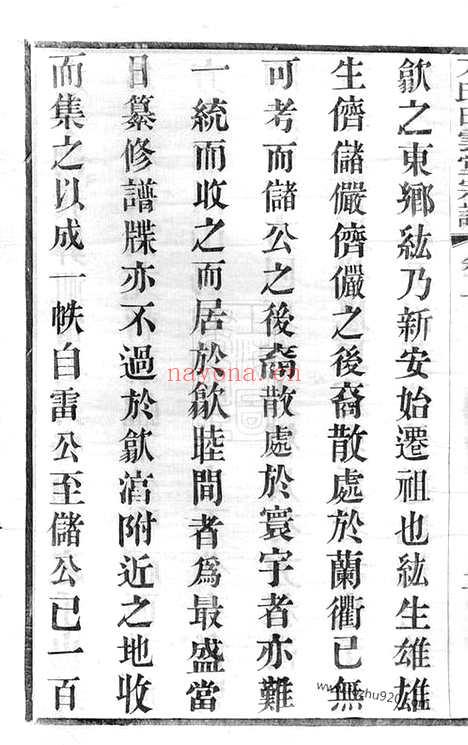 歙之東鄉紘乃新安始遷祖也紘生雄雄
生儕儲儼儕儼之後裔散處於蘭衢已無
可考而儲公之後裔散處於寰宇者亦難
一統而收之而居於歙睦間者為最盛當
日纂修譜牒亦不過於歙淯附近之地收
而集之以成一帙自雷公至儲公已一百
nayona.cn